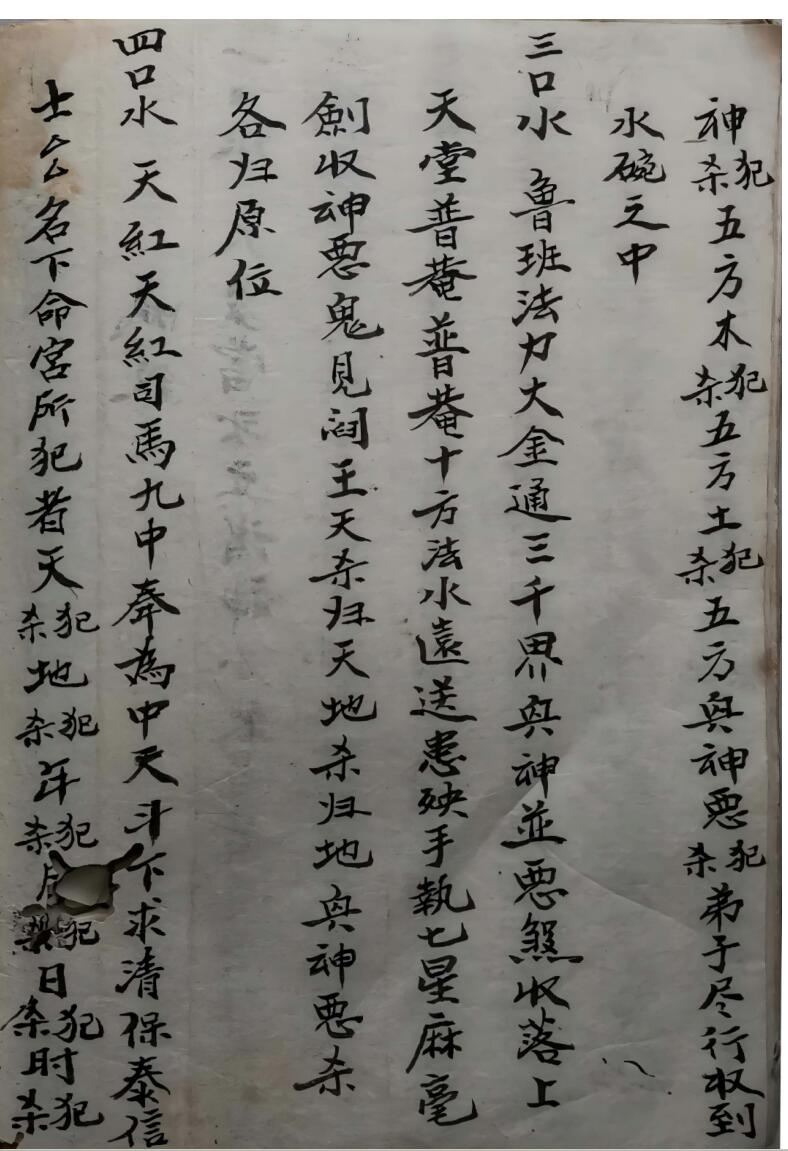 神杀犯五方木杀犯五方土杀犯五方與神恶杀犯弟子尽行收到
水碗之中
三口水 魯班法力大金通三千界與神並恶煞収落上
天堂普菴普菴十方法水遠送患殃手執七星麻毫
劍収神恶鬼見閻王天杀归天地杀归地與神恶杀
各归原位
四口水 天紅天紅司馬九中奉為中天斗下求清保泰信
士厶名下命宫所犯者天杀犯地杀犯年杀犯月杀犯日杀犯时杀犯